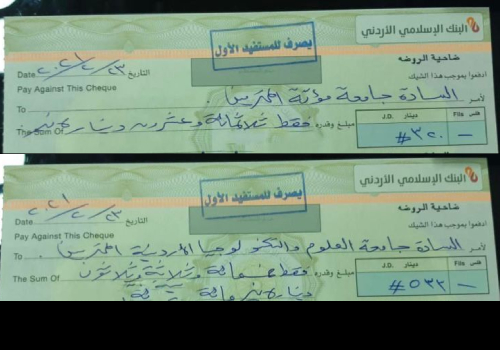 البنك الإسلامي الأردني
يصرف للمستفيد الأول
ضاحية الروضه
Date ٢٠٢١/٢/٢٣ التاريخ
ادفعوا بموجب هذا الشيك
Pay Against This Cheque
To السادة جامعة مؤتة المحترمين لأمر
The Sum Of فقط ثلاثمائة وعشرون دينار مبلغ وقدره
J.D. دينار Fils فلس
#٣٢٠ -
البنك الإسلامي الأردني
يصرف للمستفيد الأول
ضاحية الروضه
Date ٢٠٢١/٢/٢٣ التاريخ
ادفعوا بموجب هذا الشيك
Pay Against This Cheque
To السادة جامعة العلوم والتكنولوجيا الأردنية المحترمين لأمر
The Sum Of فقط خمسمائة وثلاثة وثلاثون مبلغ وقدره
J.D. دينار Fils فلس
#٥٣٣ -